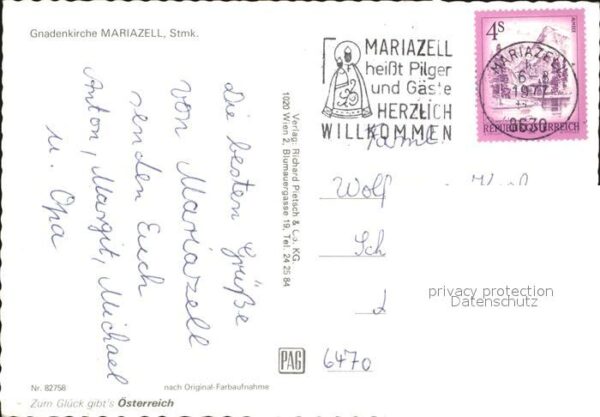 Gnadenkirche MARIAZELL, Stmk.
Die besten Grüße
von Mariazell
senden Euch
Anton, Margit, Michael
u. Opa
Nr. 82758
nach Original-Farbaufnahme
Zum Glück gibt's Österreich
Verlag: Richard Pietsch & Co. KG.
1020 Wien 2, Blumauergasse 19, Tel. 24 25 84
PAG
MARIAZELL
heißt Pilger
und Gäste
HERZLICH
WILLKOMMEN
4S
REPUBLIK ÖSTERREICH
MARIAZELL
1977
8630
Wolf
Sch
6470
privacy protection
Datenschutz